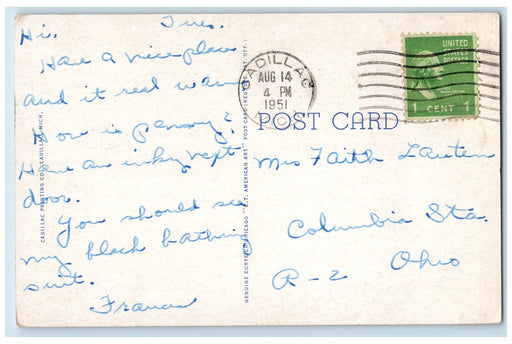 Tues.
Hi.
Have a nice place
and it real warm
How is
Have an inky next
door.
You should see
my black bathing
suit.
Frances
CADILLAC
AUG 14
4 PM
1951
MICH.
UNITED
STATES
POSTAGE
1 CENT 1
POST CARD
Mrs Faith Lauten
Columbia Sta.
Ohio
R-2
CADILLAC PRINTING CO., CADILLAC, MICH.
GENUINE CURTEICH-CHICAGO "C.T. AMERICAN ART" POST CARD (REG. U.S. PAT. OFF.)